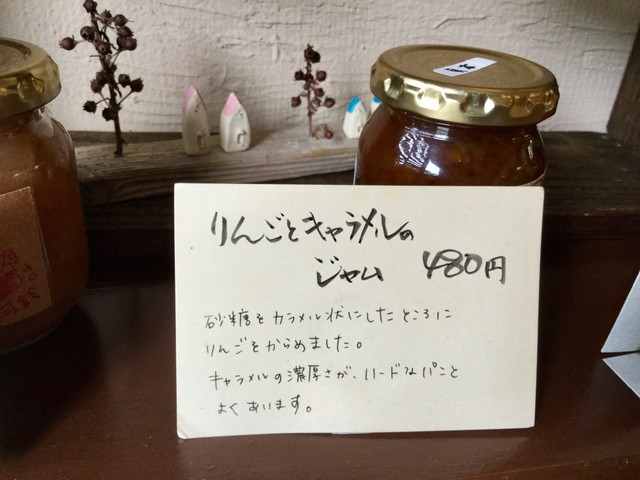 りんごとキャラメルの
ジャム 480円
砂糖をカラメル状にしたところに
りんごをからめました。
キャラメルの濃厚さが、ハードなパンと
よくあいます。